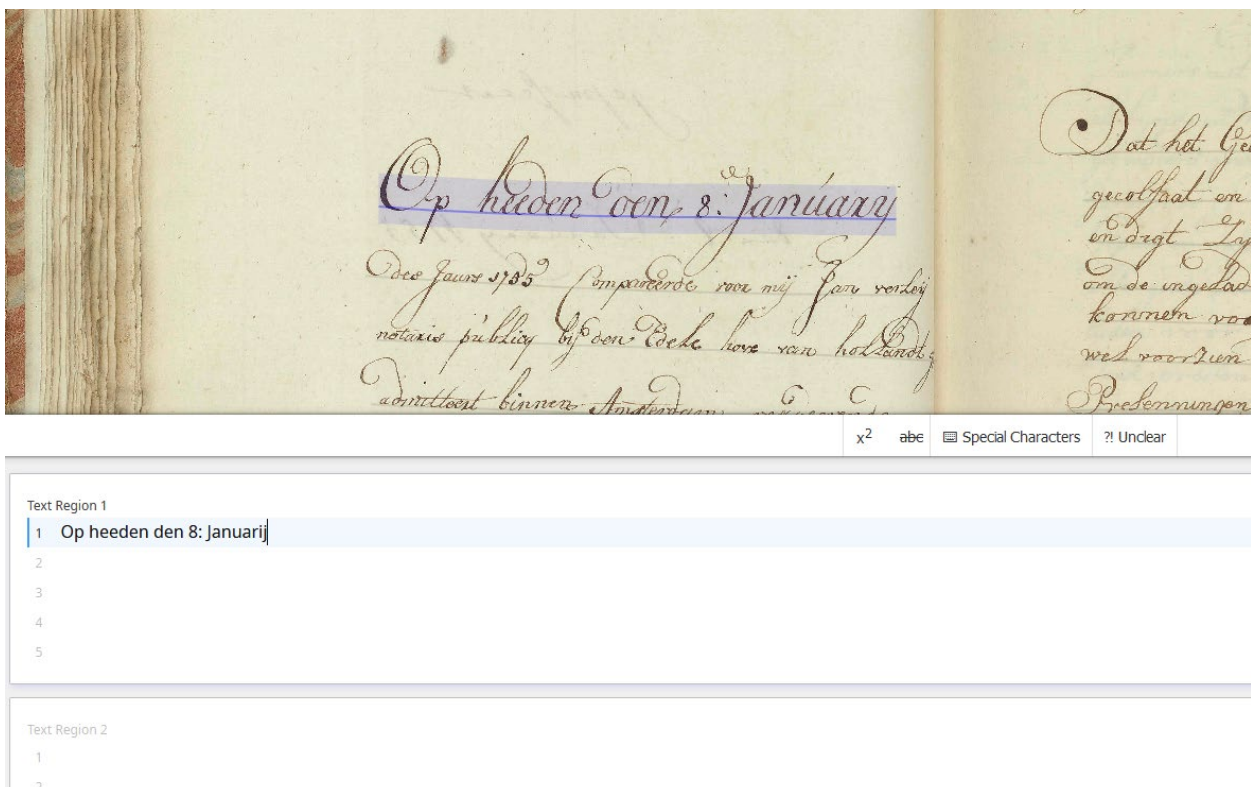 Op heeden den 8: January
des Jaars 1755 Compareerde voor mij Jan verleij
notaris publicq bij den Edele hove van hollandt
admitteert binnen Amsterdam
Dat het
gecolfaat en
en digt Zy
om de ingelad
konnen voo
wel voorzien
Presenningen
x²
abc
Special Characters
?! Unclear
Text Region 1
1 Op heeden den 8: Januarij
2
3
4
5
Text Region 2
1
2